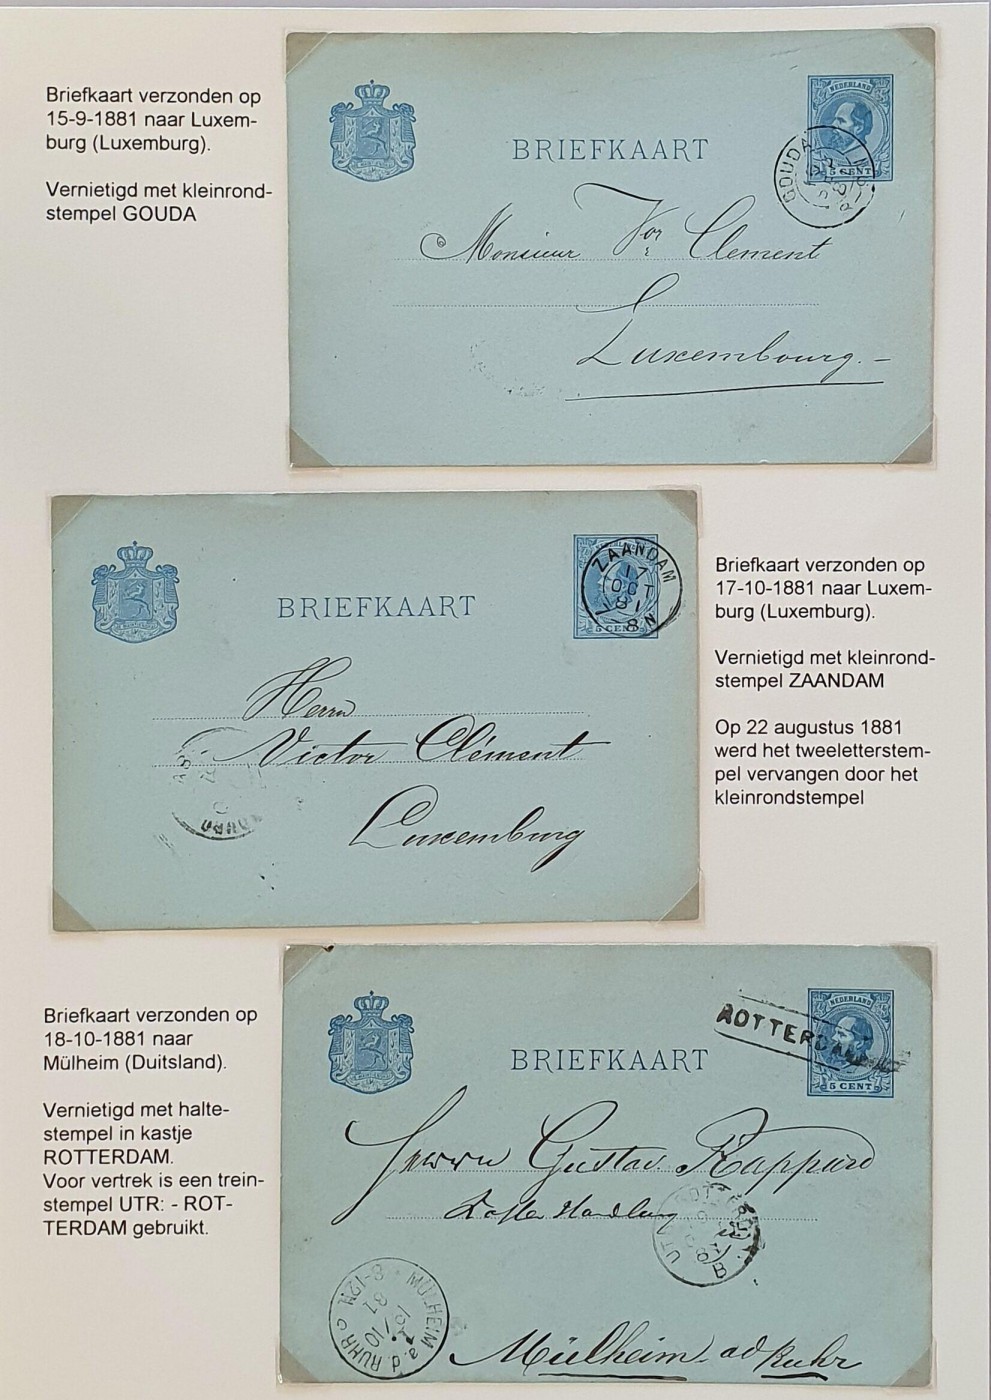 Briefkaart verzonden op
15-9-1881 naar Luxem-
burg (Luxemburg).
Vernietigd met kleinrond-
stempel GOUDA
BRIEFKAART
NEDERLAND
5 CENT
GOUDA
Monsieur Vor Clement
Luxembourg.-
BRIEFKAART
5 CENT
ZAANDAM
17
OCT
81
8N
Herrn
Victor Clément
Luxemburg
Briefkaart verzonden op
17-10-1881 naar Luxem-
burg (Luxemburg).
Vernietigd met kleinrond-
stempel ZAANDAM
Op 22 augustus 1881
werd het tweeletterstem-
pel vervangen door het
kleinrondstempel
Briefkaart verzonden op
18-10-1881 naar
Mülheim (Duitsland).
Vernietigd met halte-
stempel in kastje
ROTTERDAM.
Voor vertrek is een trein-
stempel UTR: - ROT-
TERDAM gebruikt.
BRIEFKAART
NEDERLAND
5 CENT
ROTTERDAM
Herrn Gustav Rappard
Handlung
B
MÜLHEIM a.d. RUHR
81
8-12N
Mülheim ad Ruhr